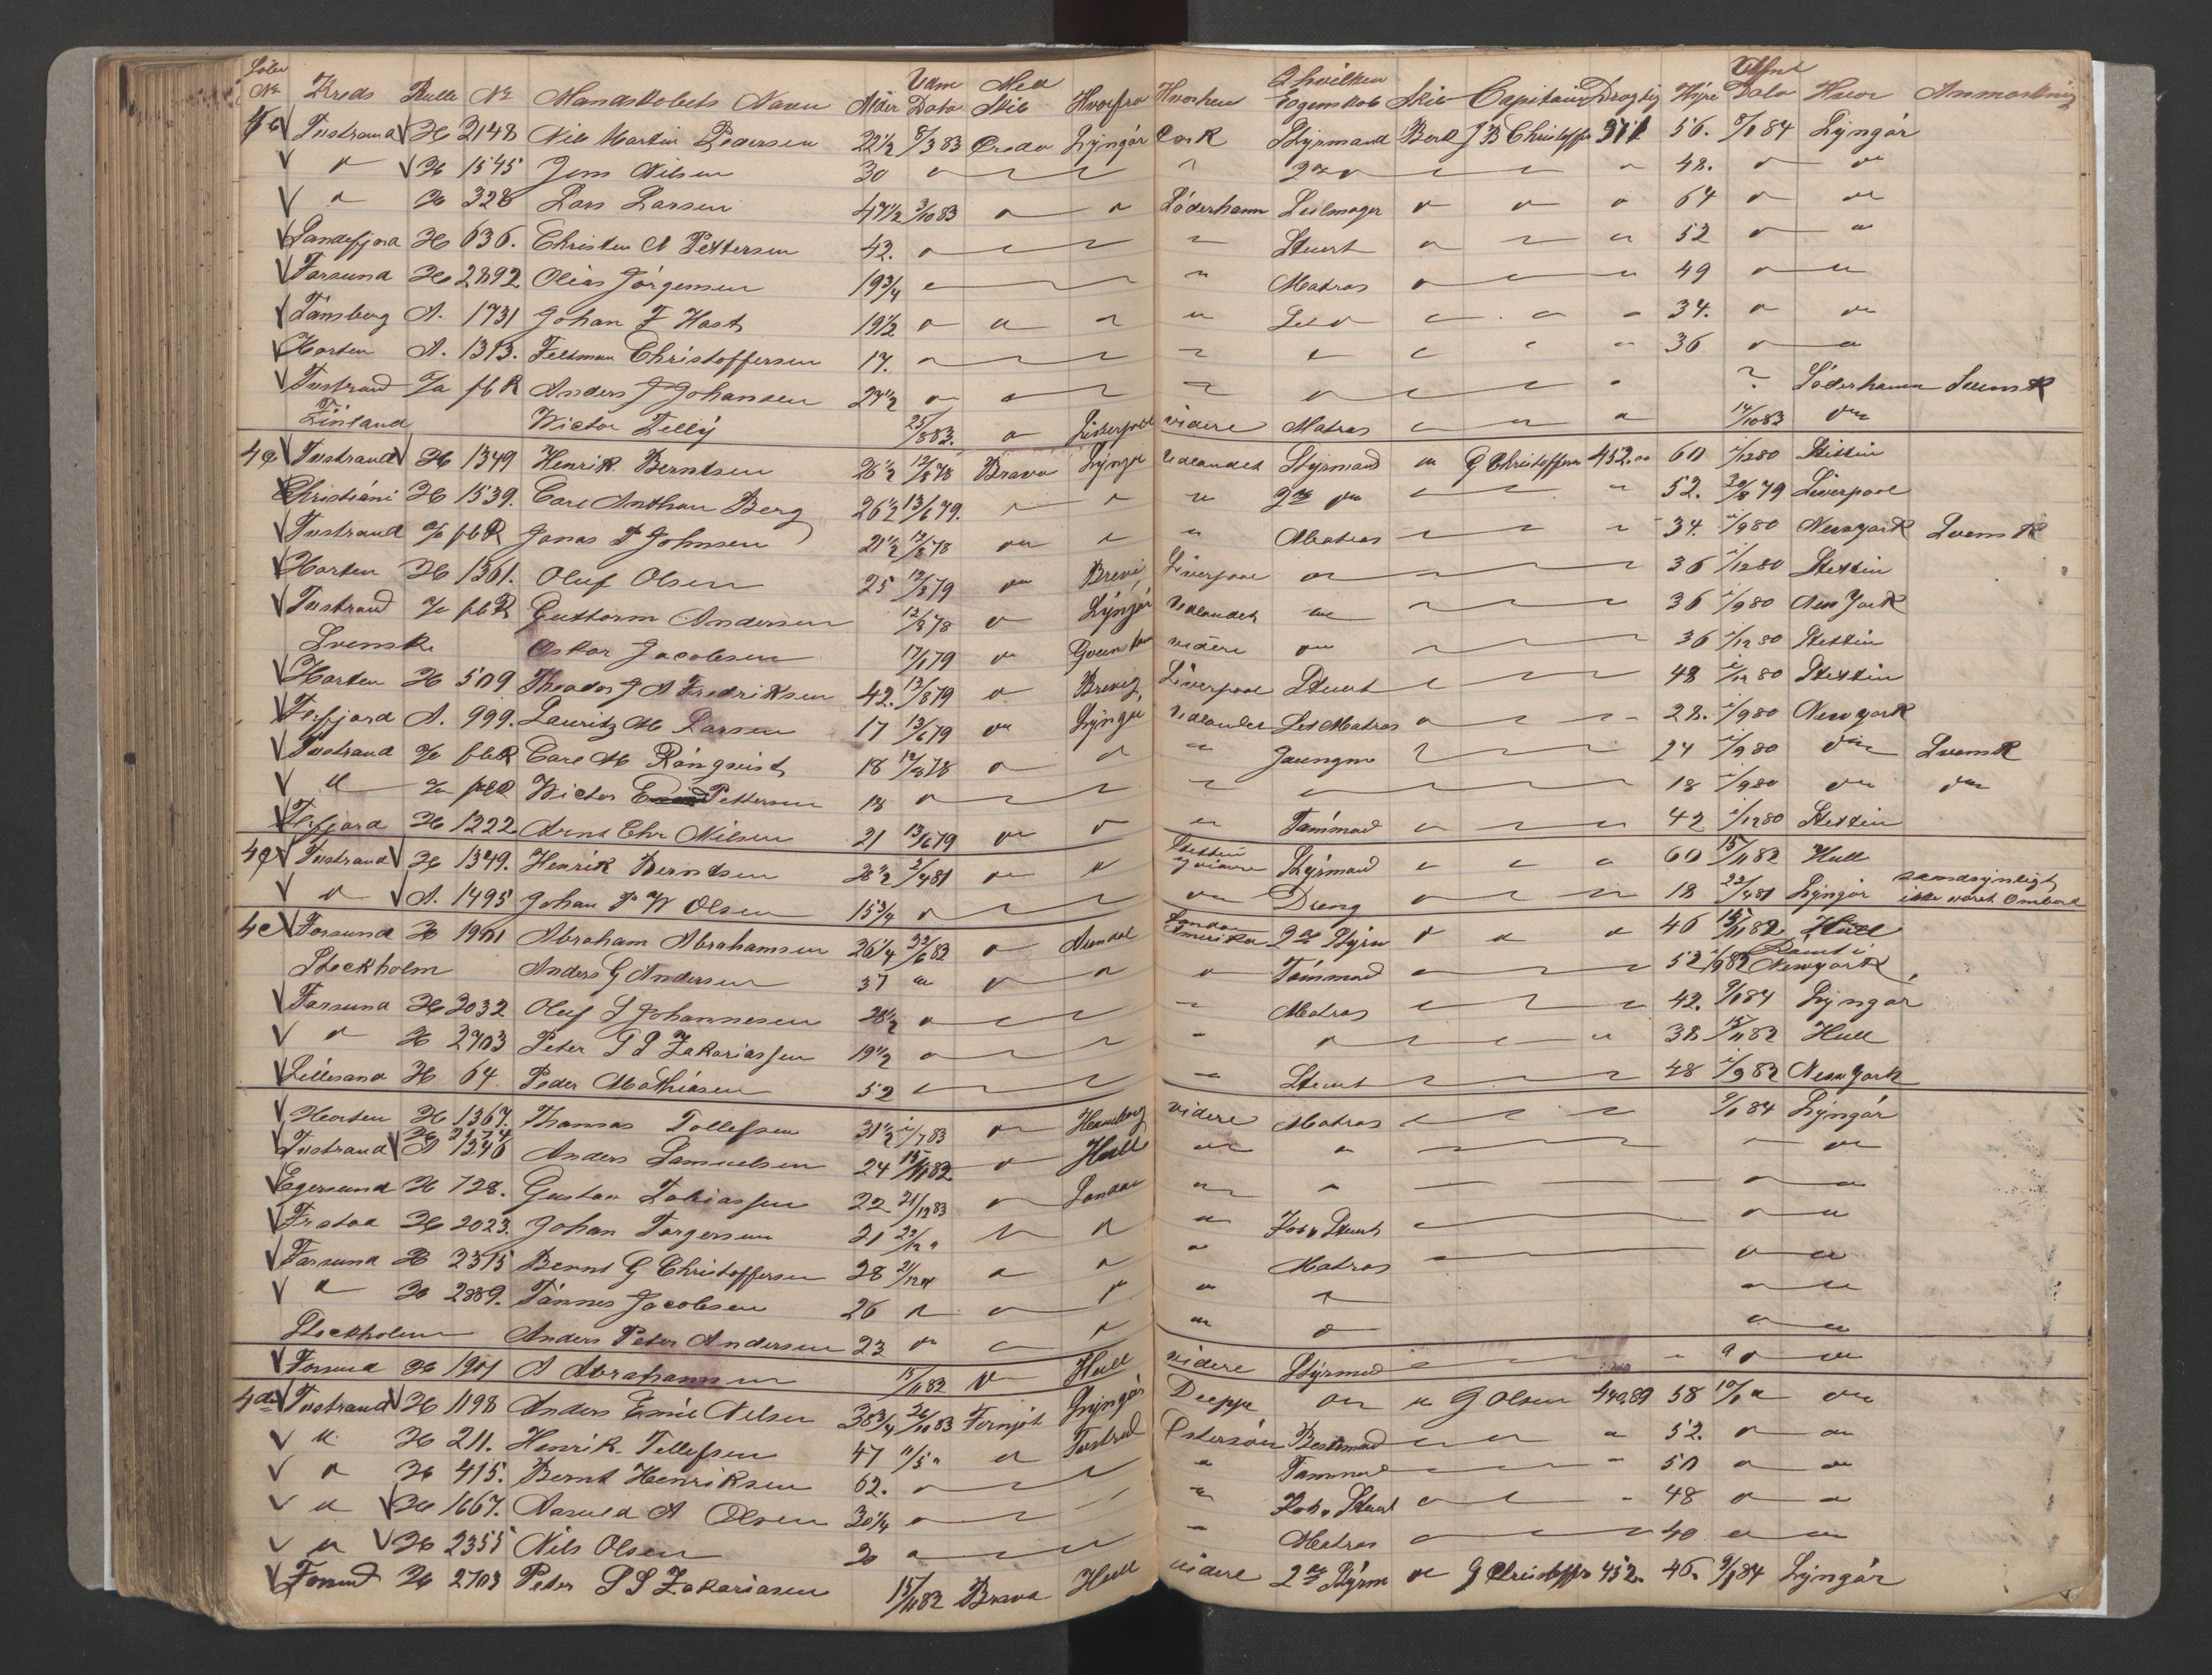 Løbe No Kreds Rulle No Mandskabets Navn Alder Udm Dato Med Skib Hvorfra Hvorhen I hvilken Egenskab Skib Capitain Drægtig Hyre Afmt Dato Hvor Anmærkning
Tvstrand H 2148 Nils Martin Pedersen 22 1/2 8/3 83 Lyngør Cork Styrmand Bark J B Christoffr 56. 9/1 84 Lyngør
" H 1545 Jens Nilsen 30 " 2den " 48. " "
" H 328 Lars Larsen 47 1/2 3/10 83 " " Söderhamn Seilmager " " " 64 " "
Sandefjord H 636. Christen A Pettersen 42. " " Stuert " 52 " "
Farsund H 2892 Olias Jörgensen 19 3/4 " " Matros " 49 " "
Tönsberg A. 1731 Johan F Hast 19 1/2 " " " " Let " 34. " "
Horten A. 1313. Feldman Christoffersen 17. " " " 36 " "
Tvstrand fbR Anders J Johansen 27 1/2 " " " Söderhamn Svensk
Finland Victor Tilly 25/8 83. " Liverpool videre Matros " 14/10 83 "
Tvstrand H 1349 Henrik Berntsen 26 1/2 12/8 78 Bravo Lyngr Udlandet Styrmand " G Christoffersn 452. 60 1/12 80 Stettin
Christiani H 1539. Carl Anthon Berg 26 1/2 13/6 79. " " " 2den " 52. 30/8 79 Liverpool
Tvstrand fbR Jonas P Johnsen 21 1/2 12/8 78 " " " Matros 34. 1/9 80 Newyork Svensk
Horten H 1361. Oluf Olsen 25 12/8 79 " Brevi Liverpool " 36 1/12 80 Stettin
Tvstrand fbR Guttorm Andersen 12/8 78 " Lyngør Udlandet " 36 1/9 80 New York
Svensk Oskar Jacobsen 17/1 79 " videre " 36 1/12 80 Stettin
Horten H 509 Theodor J A Fredriksen 42. 12/8 79 " Brevig Liverpool Stuert 48 1/12 80 Stettin
A. 999. Lauritz M Larsen 17 13/6 79 " Lyngør Udlandet Let Matros " 28. 1/9 80 Newyork
Tvstrand fbR Carl M Rönquist 18 12/8 78 " " " Jungm 24 1/9 80 " Svensk
" fbR Victor Pettersen 18 " " 18 1/9 80 " "
H 1222 Arnt Chr Nilsen 21 13/6 79 " " " Tømmad 42 1/12 80 Stettin
Tvstrand H 1349. Henrik Berntsen 28 1/2 2/4 81 " " Stettin og videre Styrmand " " " 60 15/11 82 Hull
" A. 1495 Johan P W Olsen 15 3/4 " " Dreng " 18 22/4 81 Lyngør sandsynligt ikke været Ombord
4c Farsund H 1901 Abraham Abrahamsen 26 1/4 22/6 82 " Arendal London Amerika 2den Styrm " " " 46 15/11 82 Hull
Stockholm Anders G Andersen 37 " " " " Tømmad " 52 1/9 82 Rømt i Newyork
Farsund H 3032 Oluf S Johannesen 28 1/2 " " Matros 42. 9/1 84 Lyngør
" H 2703 Peter G S Zakariassen 19 1/2 " " " 38 15/11 82 Hull
Lillesand H 64. Peder Mathiasen 52 " " Stuert 48 1/9 82 New York
Horten H 1367. Thomas Tollefsen 31 1/2 1/7 83 " Hamburg videre Matros 9/1 84 Lyngør
H 2174
Tvstrand A 1240 Anders Samuelsen 24 15/11 82. " Hull " " " "
Egersund H 728. Gustav Tobiassen 22 21/12 83 " London " " " "
Frstad H 2023. Johan Torgersen 21 22/12 " " " " Kok & Stuert " "
Farsund H 2315 Bernt G Christoffersen 28 21/12 " " " " Matros " "
" H 2889. Tønnes Jacobsen 26 " " " " " " "
Stockholm Anders Peter Andersen 23 " " " " " " "
Farsund H 1901 A Abrahamsen 15/11 82 " Hull videre Styrmd 9 " "
4d Tvstrand H 1198 Anders Emil Nilsen 38 3/4 26/10 83 Fornjot Lyngør Deeppe " " G Olsen 440,89 58 10/1 " "
" H 211. Henrik Tellefsen 47 11/5 " " Tvstrd Østersöen Bestmand " " " 52. " "
" H 415. Bernt Henriksen 62. " " Tømmad 50 " "
" H 1667. Aasuld A Olsen 30 1/4 " " Kok & Stuert " 48 " "
" H 2355 Nils Olsen 20 " " Matros " 40 " "
Farsund H 2703 Peter S S Zakariasen 15/11 82 Bravo Hull videre 2den Styrm " G Christoffr 452. 46. 9/1 84 Lyngør